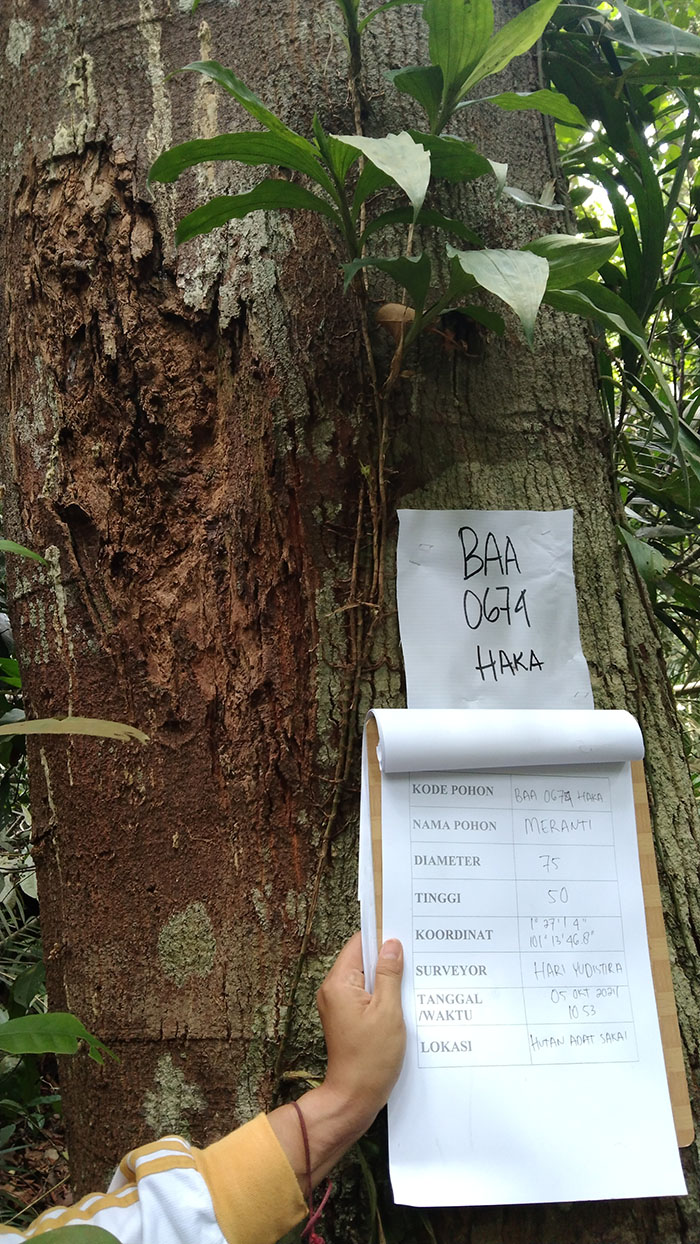 BAA
0674
HAKA
KODE POHON BAA 0674 HAKA
NAMA POHON MERANTI
DIAMETER 75
TINGGI 50
KOORDINAT 1° 27' 1 4"
101° 13' 46.8"
SURVEYOR HARI YUDISTIRA
TANGGAL 05 OKT 2021
/WAKTU 10 53
LOKASI HUTAN ADAT SAKAI